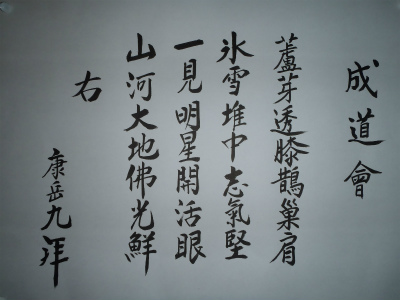 成道會
蘆芽透膝鵲巢肩
氷雪堆中志氣堅
一見明星開活眼
山河大地佛光鮮
右
康岳九拜